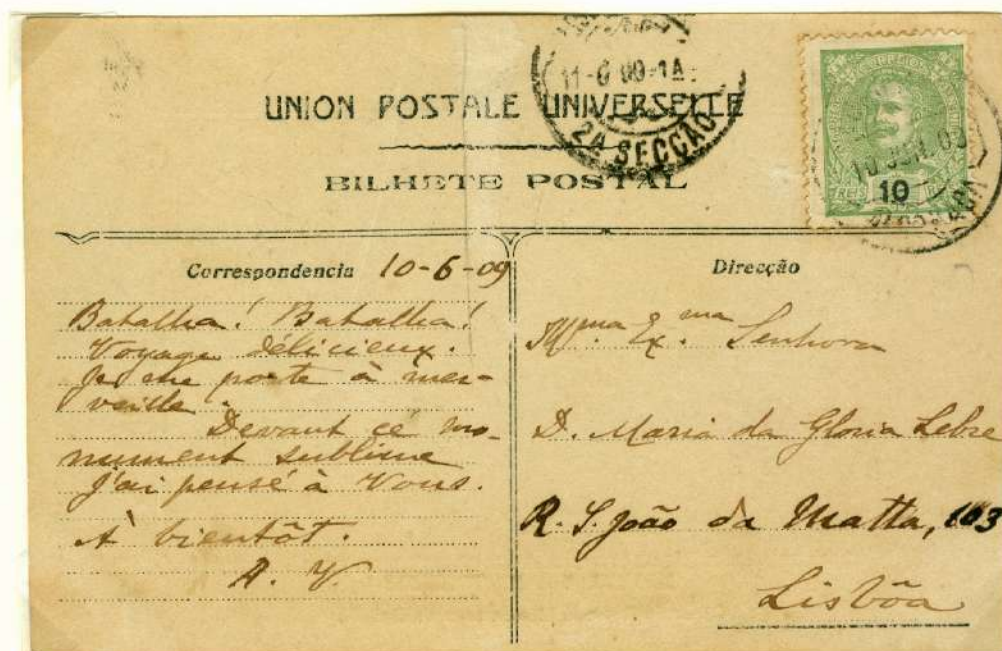 UNION POSTALE UNIVERSELLE
BILHETE POSTAL
11-6 09-1A
2A SECÇÃO
CORREIOS
10
REIS
10 JUN 09
Correspondencia 10-6-09
Batalha! Batalha!
Voyage délicieux.
Je me porte à mer-
veille.
Devant ce mo-
nument sublime
j'ai pensé à Vous.
À bientôt.
A. V.
Direcção
Illma. Exma. Senhora
D. Maria da Gloria Lebre
R. S. João da Matta, 103
Lisbôa